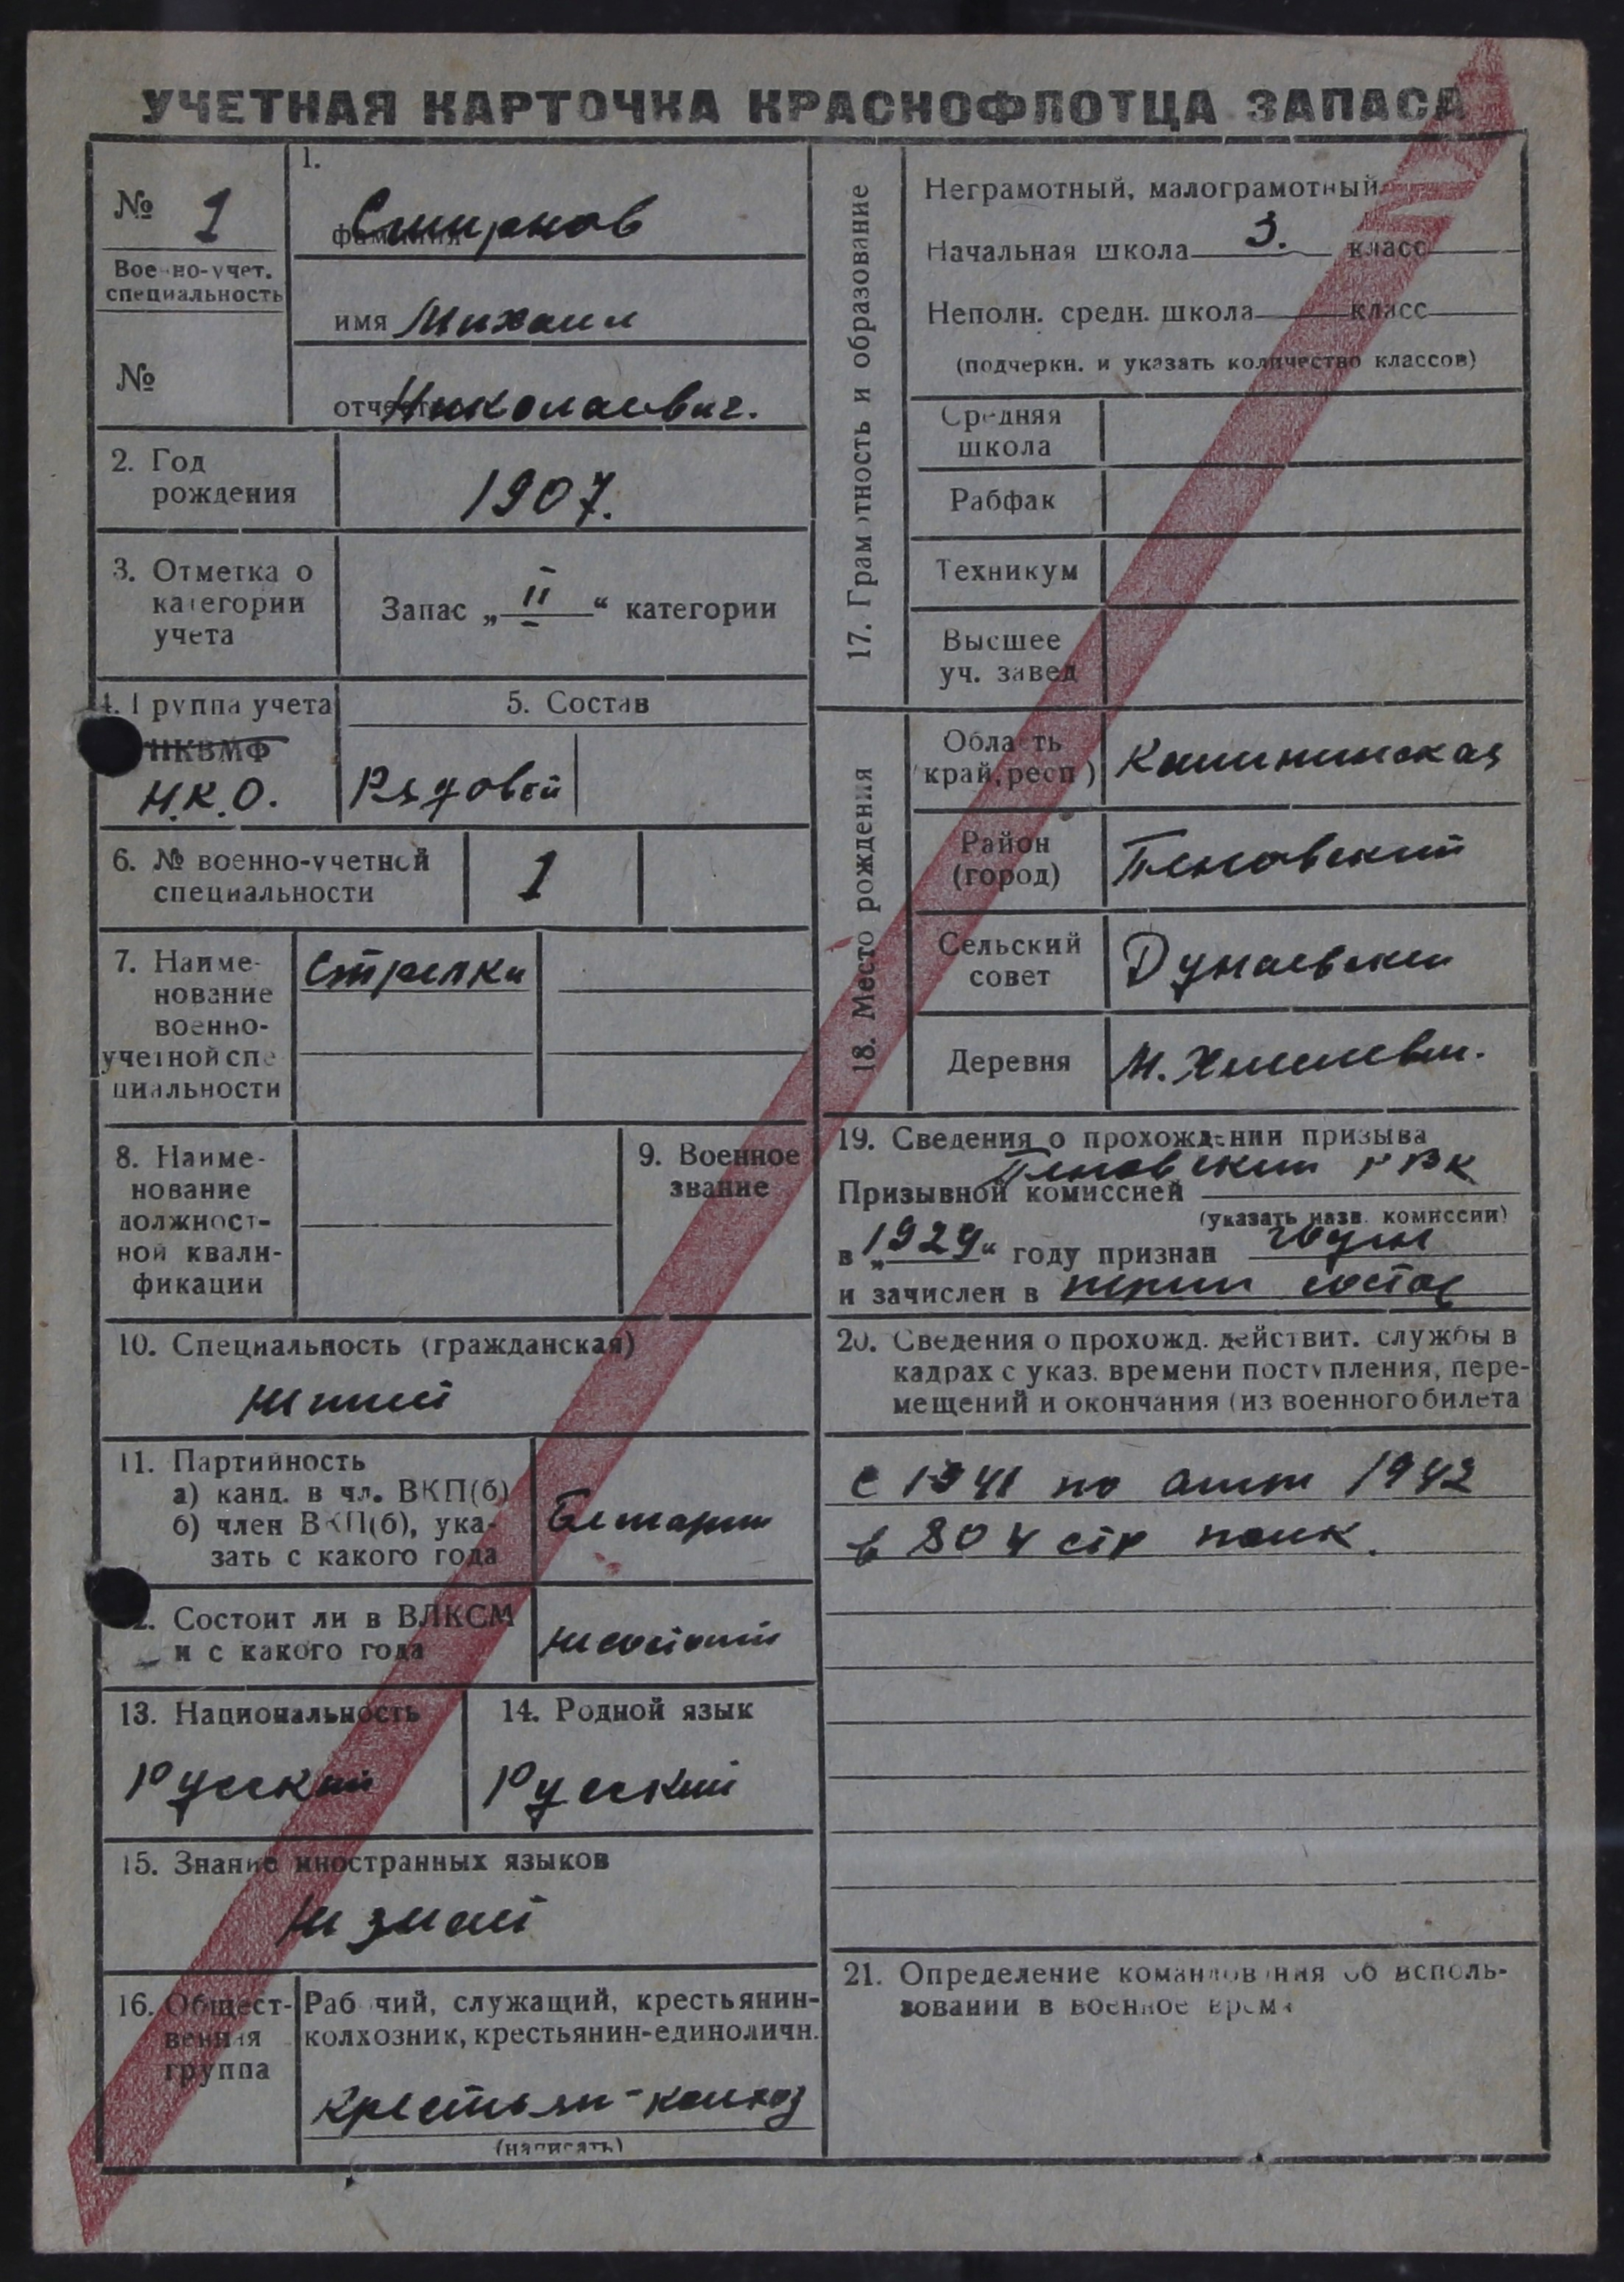 УЧЕТНАЯ КАРТОЧКА КРАСНОФЛОТЦА ЗАПАСА
№ 1
Военно-учет.
специальность
№
1.
фамилия Смирнов
имя Михаил
отчество Николаевич.
2. Год
рождения
1907.
3. Отметка о
категории
учета
Запас „ II “ категории
4. Группа учета
НКВМФ
Н.К.О.
5. Состав
Рядовой
6. № военно-учетной
специальности
1
7. Наиме-
нование
военно-
учетной спе
циальности
Стрелки
8. Наиме-
нование
должност-
ной квали-
фикации
9. Военное
звание
10. Специальность (гражданская)
11. Партийность
а) канд. в чл. ВКП(б)
б) член ВКП(б), ука-
зать с какого года
Безпарт
12. Состоит ли в ВЛКСМ
и с какого года
не состоит
13. Национальность
Русский
14. Родной язык
Русский
15. Знание иностранных языков
не знает
16. Общест-
венная
группа
Рабочий, служащий, крестьянин-
колхозник, крестьянин-единоличн.
Крестьян-колхоз
(написать)
17. Грамотность и образование
Неграмотный, малограмотный
Начальная школа 3. класс
Неполн. средн. школа класс
(подчеркн. и указать количество классов)
Средняя
школа
Рабфак
Техникум
Высшее
уч. завед
18. Место рождения
Область
край, респ)
Калининская
Район
(город)
Пеновский
Сельский
совет
Дунаевский
Деревня
М.
19. Сведения о прохождении призыва
Призывной комиссией Пеновский РВК
(указать назв. комиссии)
в „1929“ году признан годен
и зачислен в состав
20. Сведения о прохожд. действит. службы в
кадрах с указ. времени поступления, пере-
мещений и окончания (из военного билета
с 1941 по 1942
в 804 стр полк.
21. Определение командования об исполь-
зовании в военное время